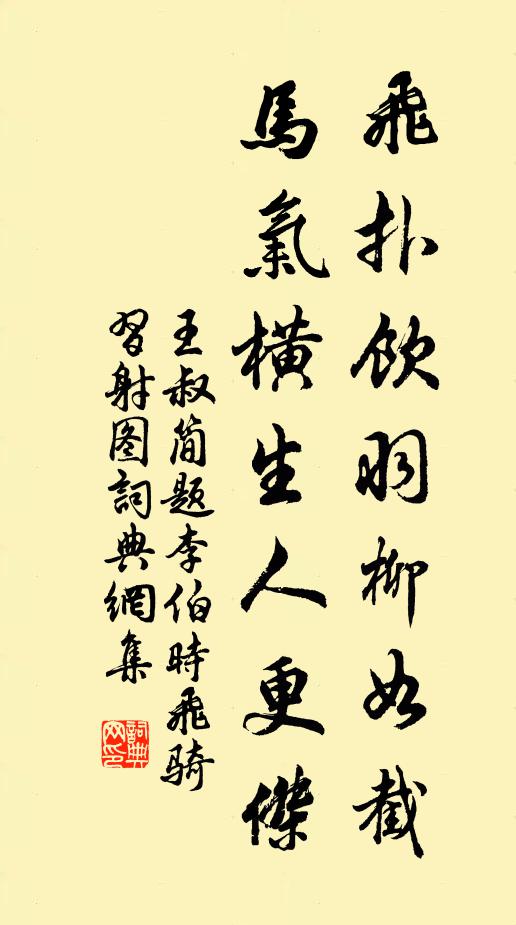 飛扑飲羽柳如截
馬氣橫生人更傑
王叔简题李伯時飛骑
習射图詞典網集
詞典網印